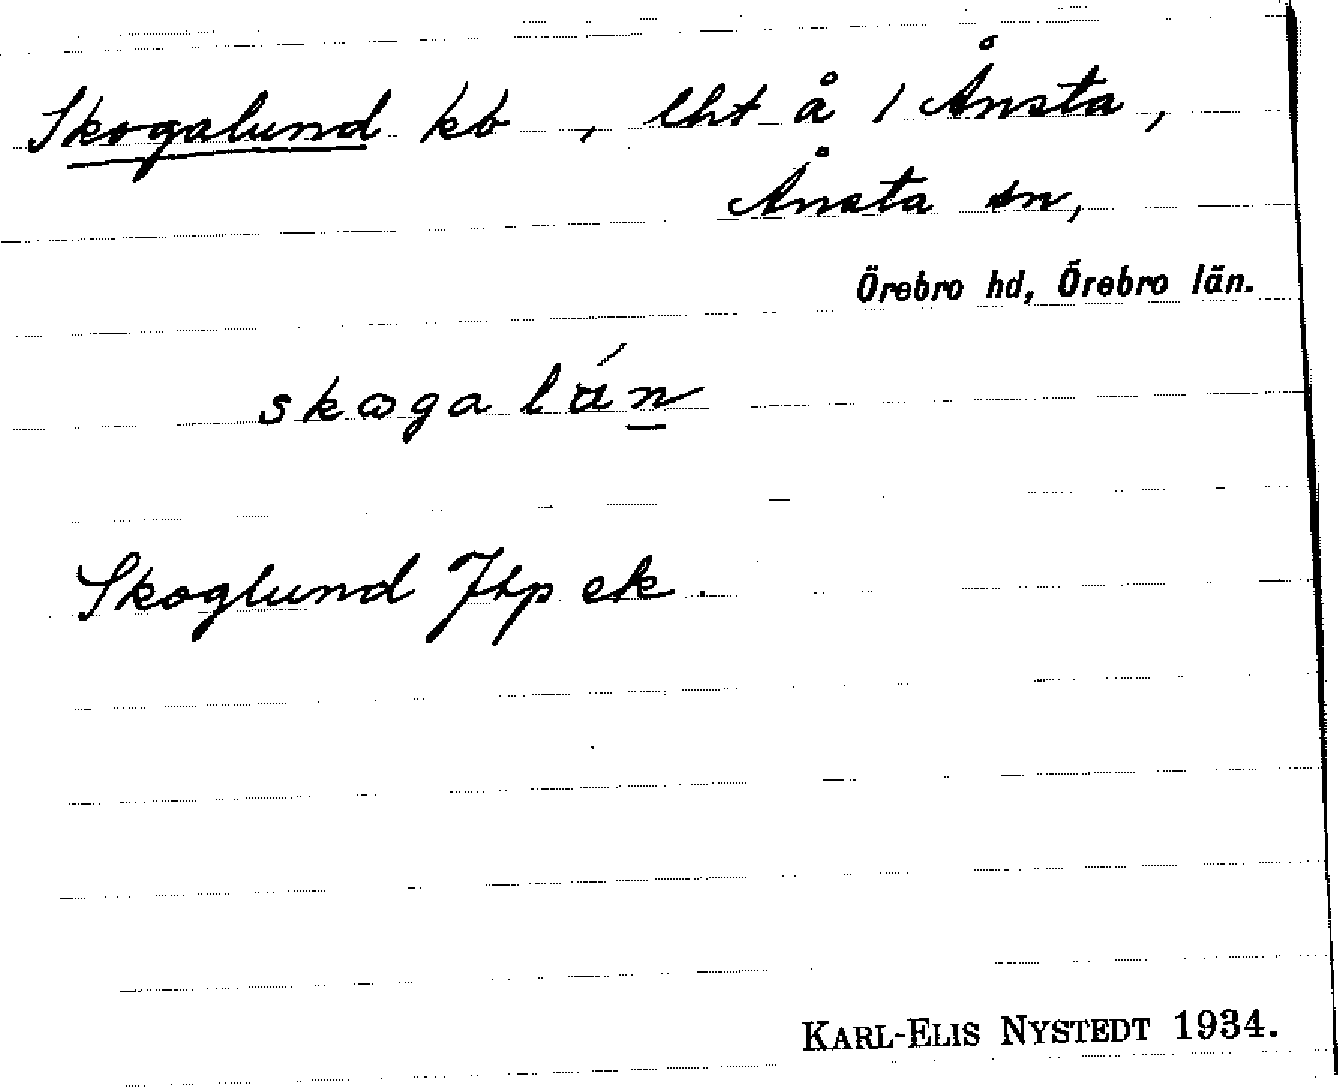 Skogalund kb, lht å 1 Ånsta,
Ånsta sn,
Örebro hd, Örebro län.
skɷga lán
Skoglund Jtp ek.
KARL-ELIS NYSTEDT 1934.